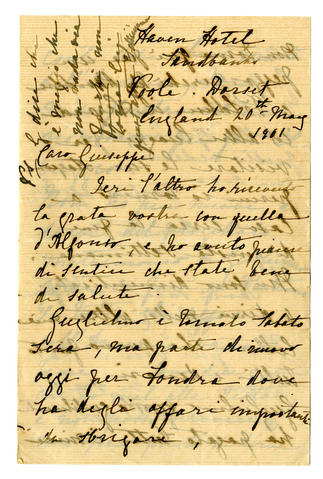 Haven Hotel
Sandbanks
Poole. Dorset
England 20th May
1901
Caro Giuseppe
Ieri l'altro ho ricevuto
la grata vostra con quella
d'Alfonso, e ho avuto piacere
di sentire che state bene
di salute.
Guglielmo è tornato Sabato
sera, ma parte di nuovo
oggi per Londra dove
ha degli affari importanti
da sbrigare,
PS
dice che
è meglio che